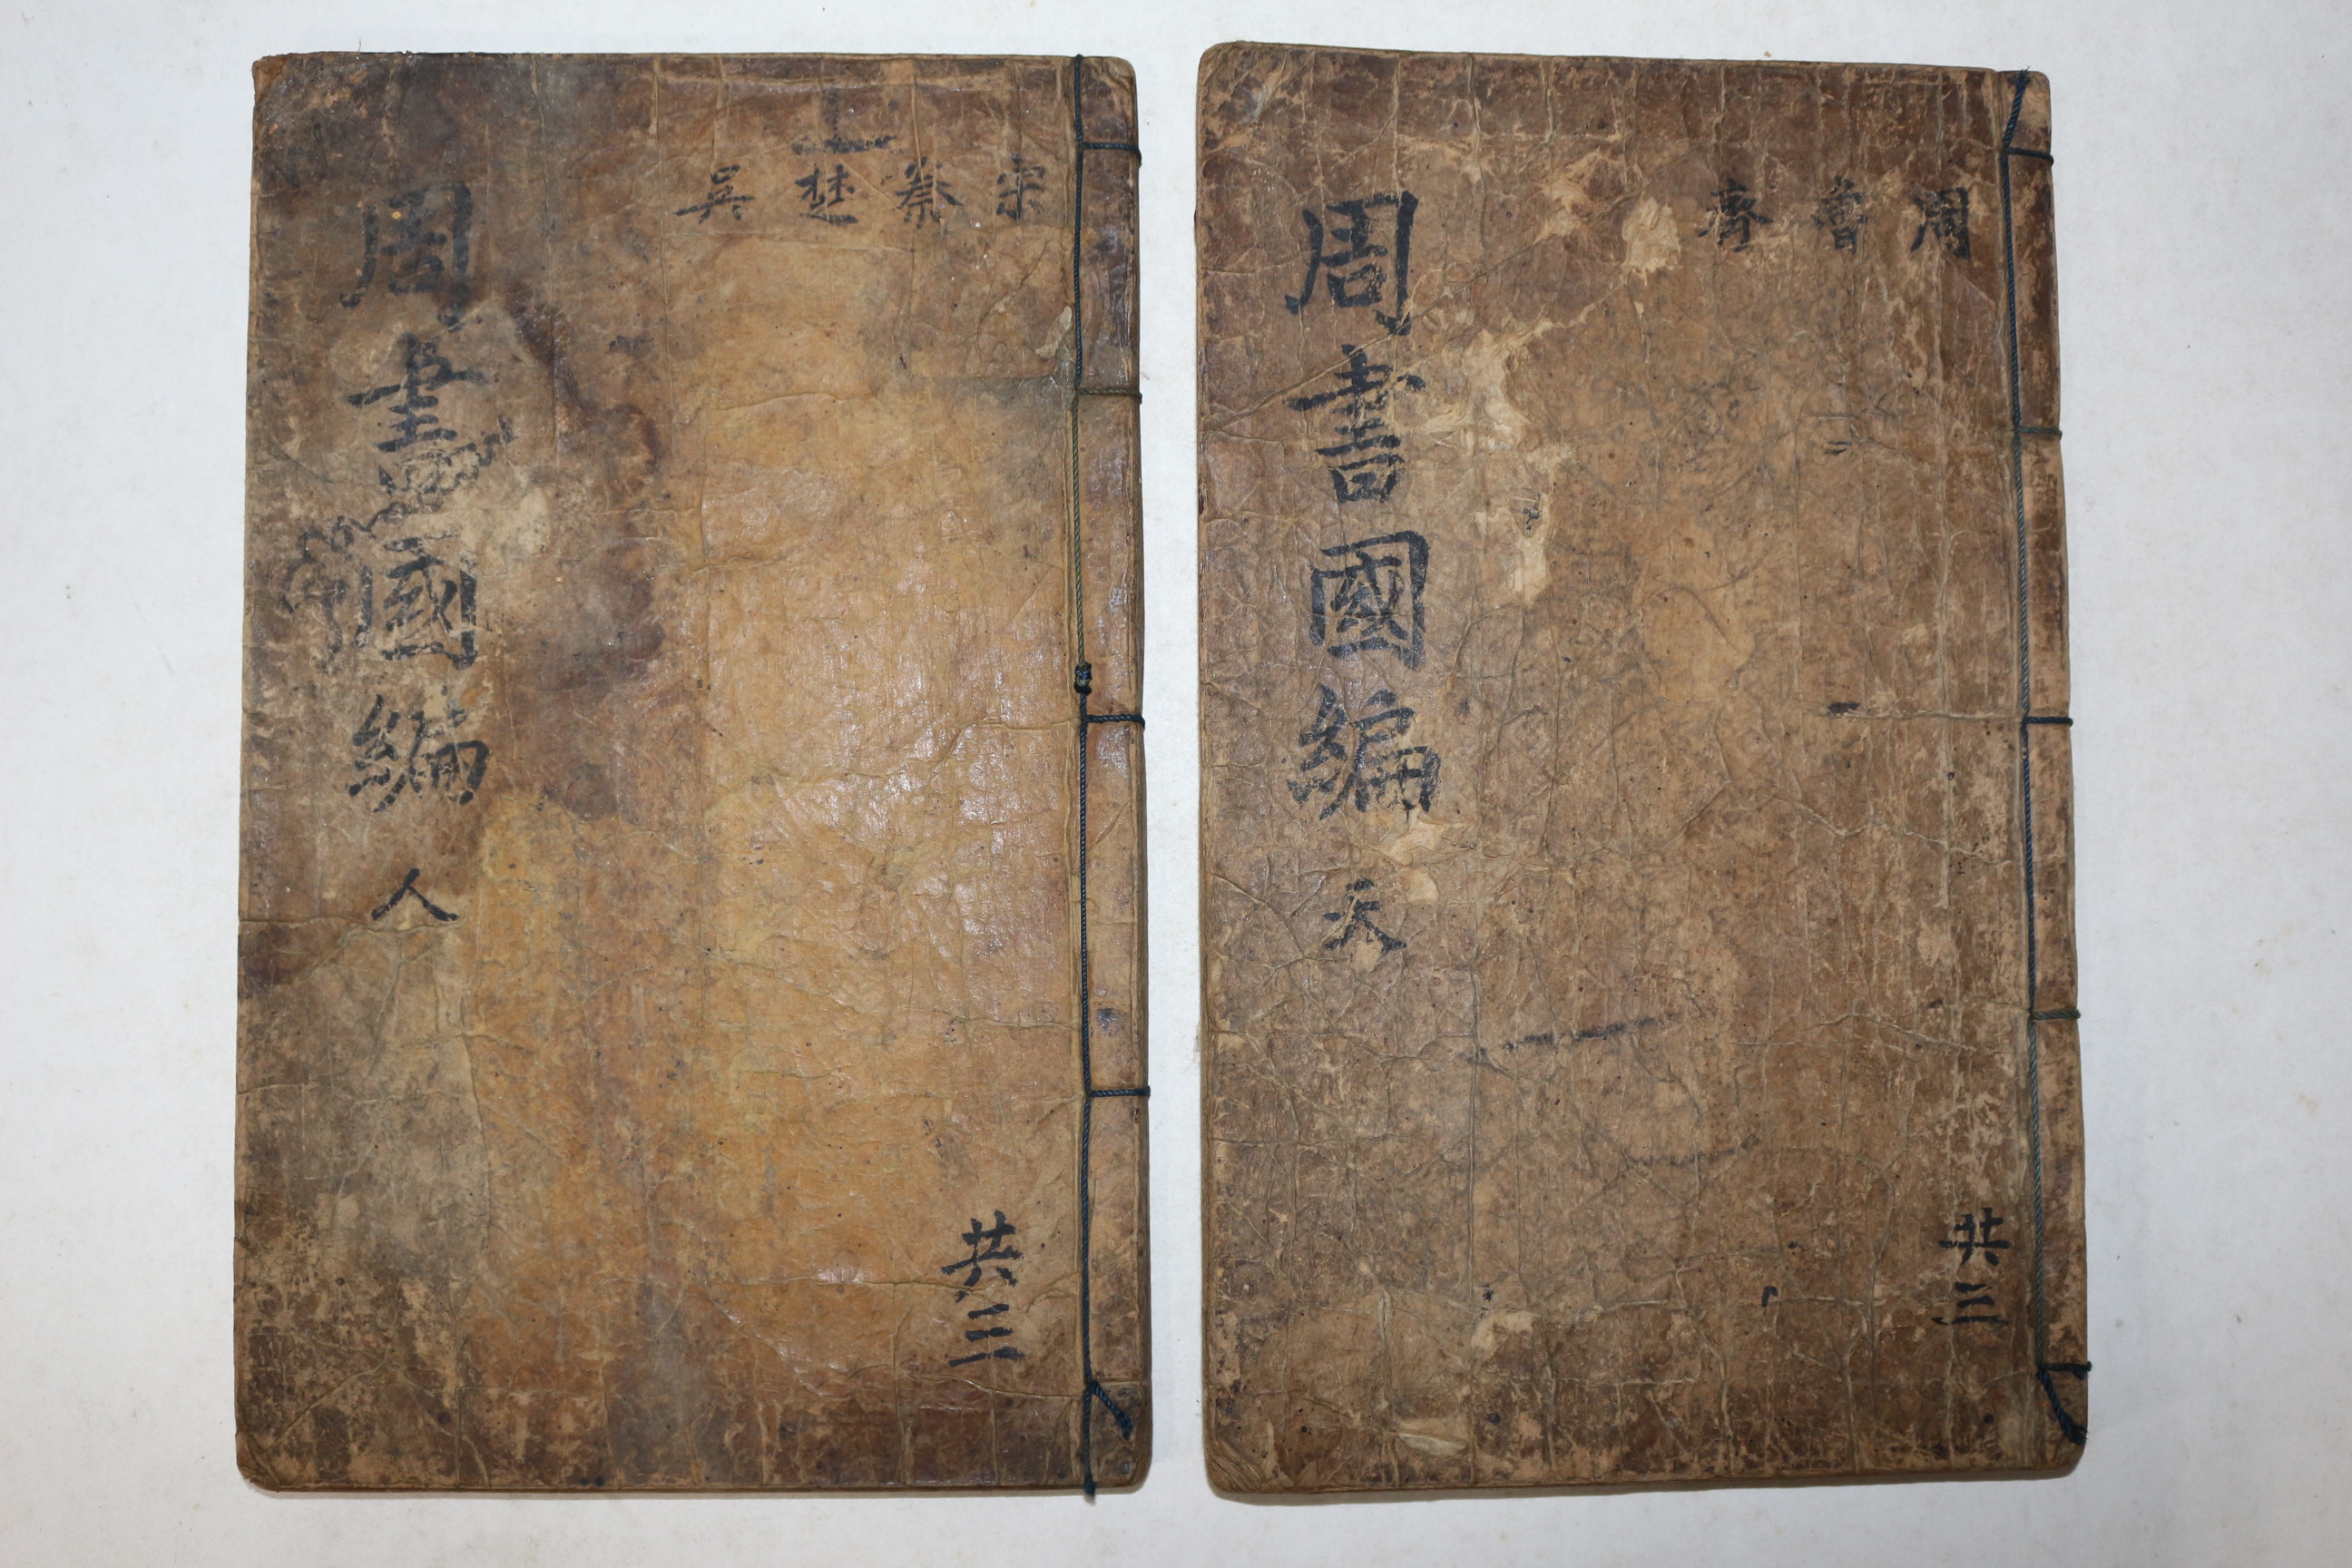 周 魯 齊
周書國編 天
共三
宋 蔡 楚 吳
周書國編 人
共三